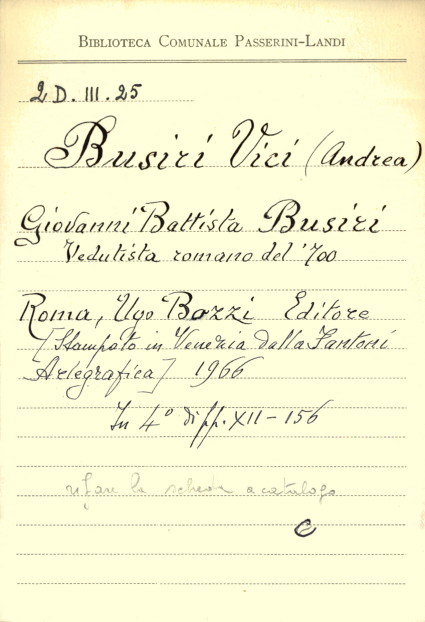 BIBLIOTECA COMUNALE PASSERINI-LANDI
2 D. III. 25
Busiri Vici (Andrea)
Giovanni Battista Busiri
Vedutista romano del '700
Roma, Ugo Bozzi Editore
[Stampato in Venezia dalla Fantoni
Artegrafica] 1966
In 4° di pp. XII - 156
rifare la scheda a catalogo
C